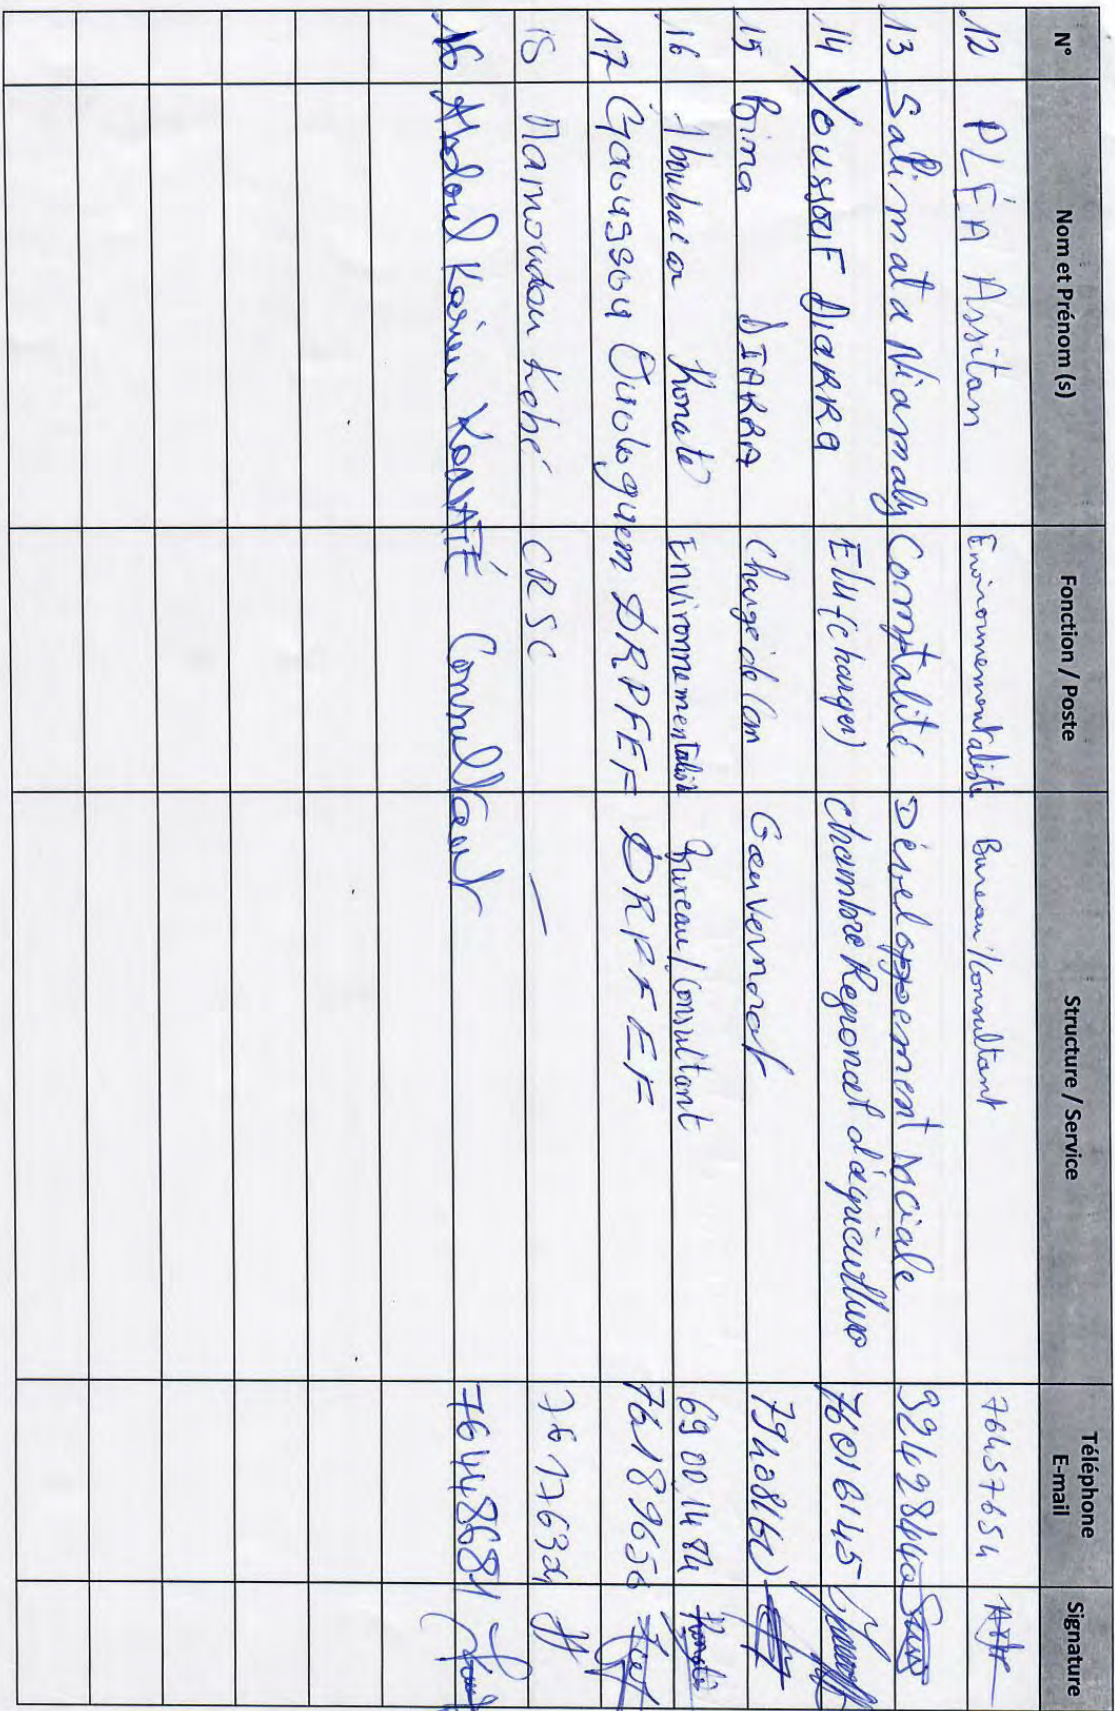 N° Nom et Prénom (s) Fonction / Poste Structure / Service Téléphone E-mail Signature
12 PLÉA Assitan Environnementaliste Bureau/Consultant 76457654
13 Salimata Niamaly Comptalité Développement sociale
14 Youssouf Diarra Elu (charger) chambre Regional d'agriculture 76016145
15 Brima DIARRA Chargé de Com Gouvernorat
16 Aboubacar Konaté Environnementaliste Bureau/Consultant 69 00 14 84
17 Gaoussou Ouologuem DRPFEF DRPFEF 76189656
18 Mamoudou Kebé CRSC —
16 Abdoul Karim KONATÉ Consultant 76448681